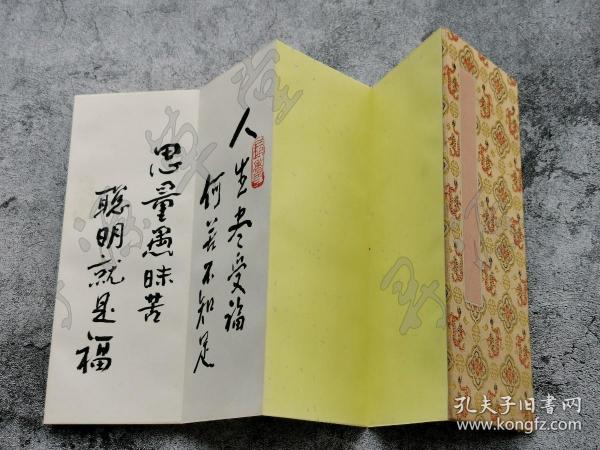 人生尽受福
何苦不知足
思量愚昧苦
聪明就是福
孔夫子旧书网
www.kongfz.com